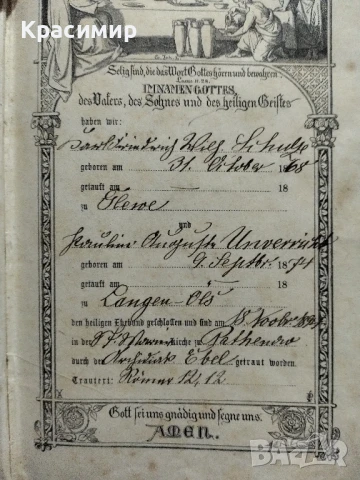 Красимир
Selig sind, die das Wort Gottes hören und bewahren.
IM NAMEN GOTTES,
des Vaters, des Sohnes und des heiligen Geistes
haben wir:
Karl Friedrich Wilh. Schulze
geboren am 31. October 1868
getauft am — 18
zu Clewe
und
Pauline Auguste Unverricht
geboren am 9. Septbr. 1871
getauft am — 18
zu Langen-Öls
den heiligen Ehebund geschlossen und sind am 18 Novbr. 189
in der Pfarrkirche zu Rathenow
durch den Archidiak. Ebel getraut worden.
Trautext: Römer 12, 12
Gott sei uns gnädig und segne uns.
AMEN.
bazar.bg